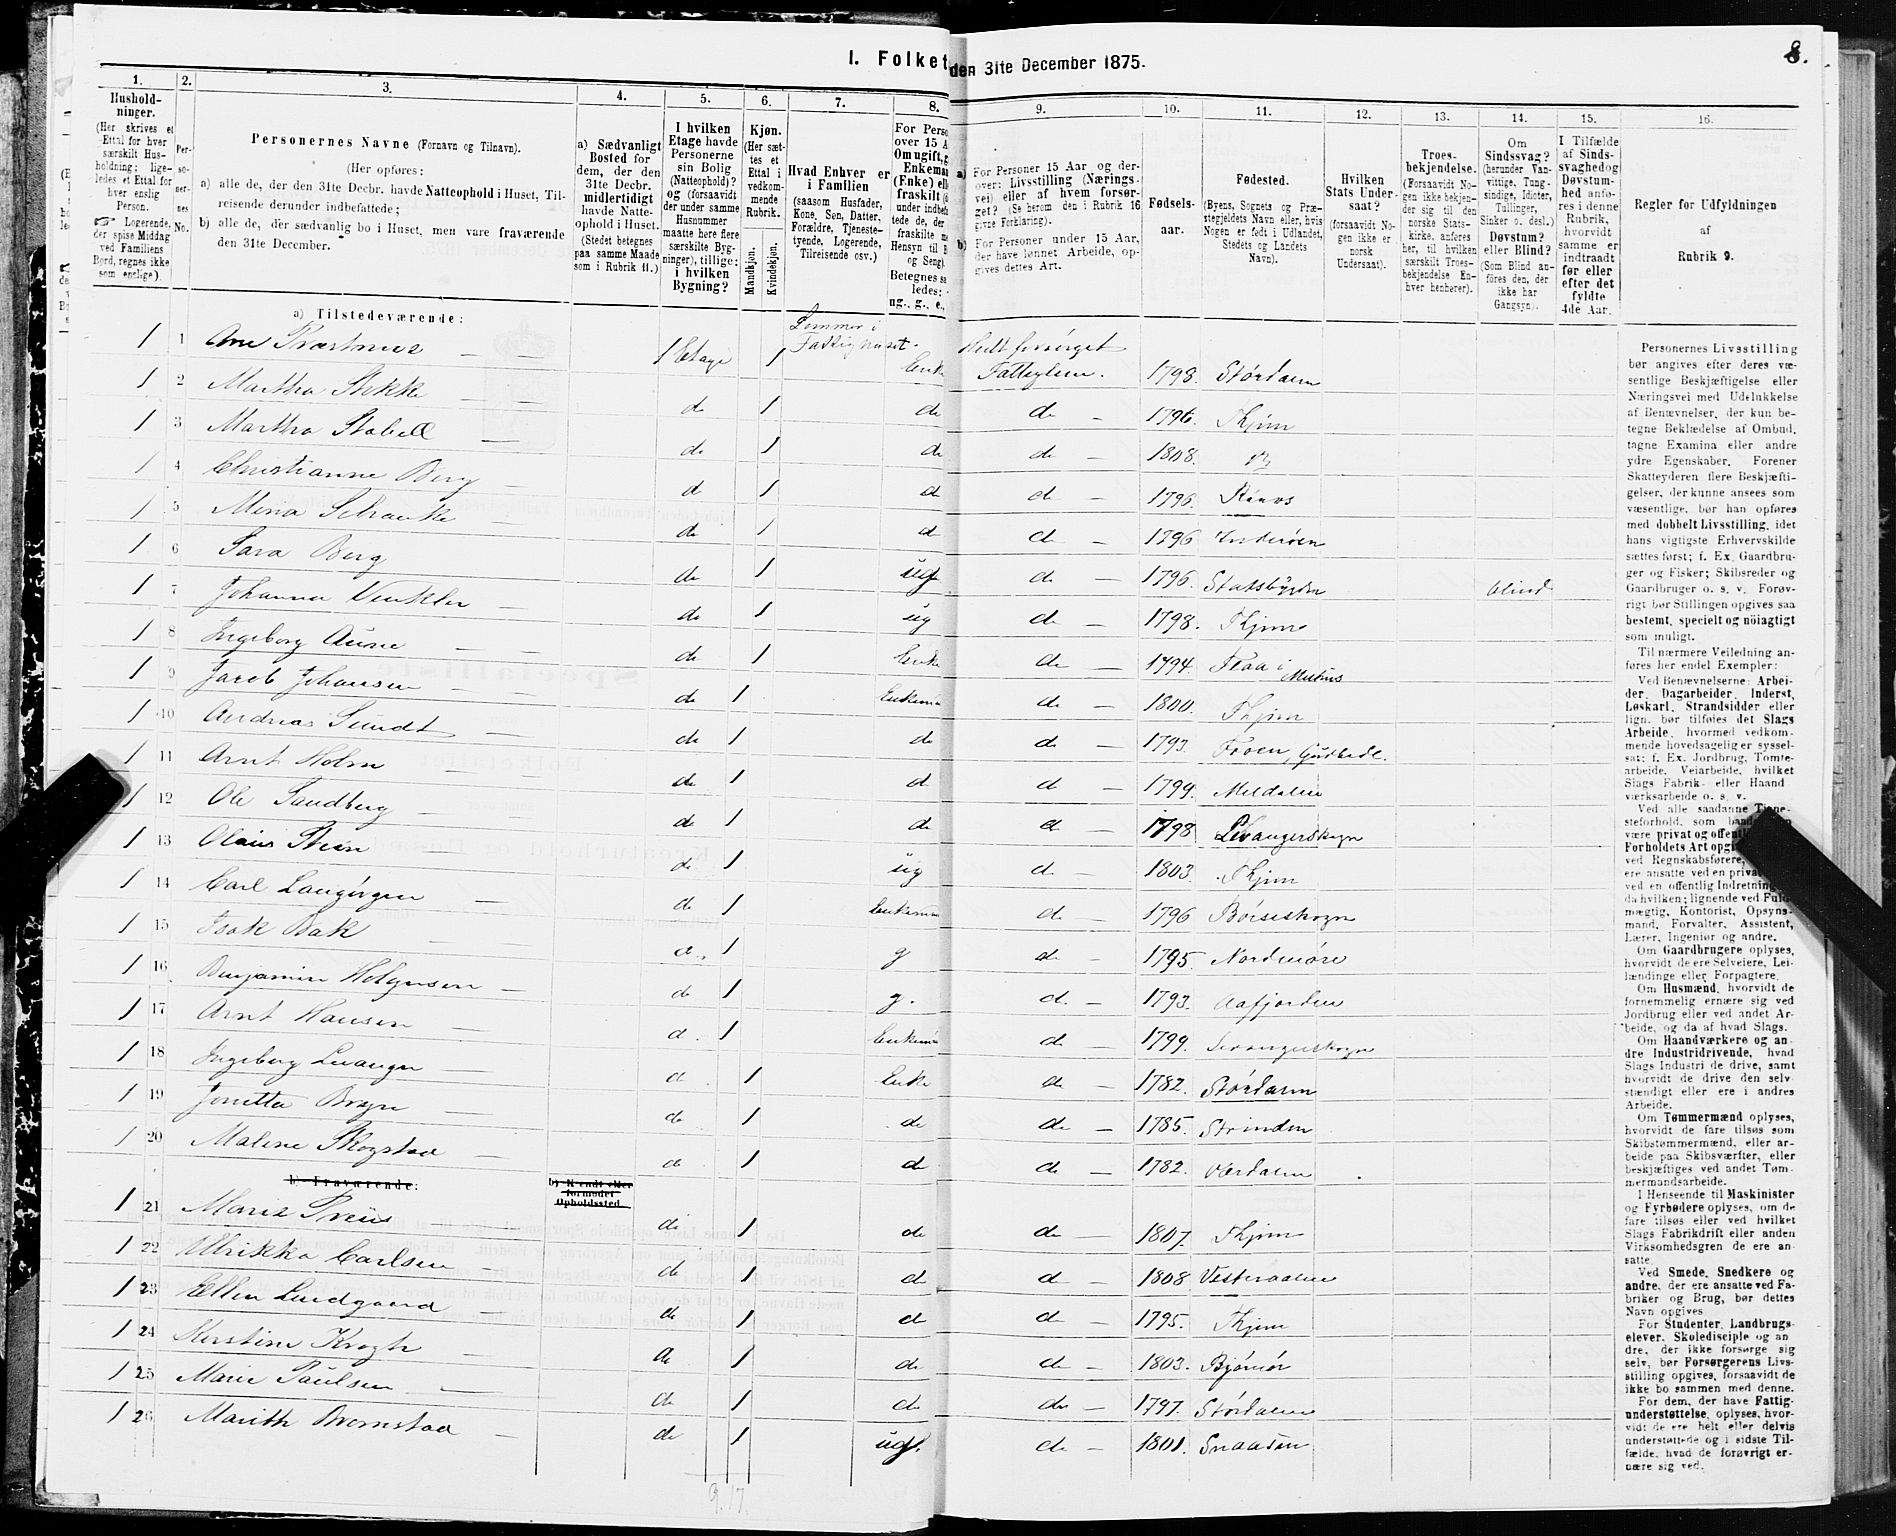 I. Folket den 31te December 1875.
8.
1. 2. 3. 4. 5. 6. 7. 8. 9. 10. 11. 12. 13. 14. 15. 16.
Hushold-
ninger.
(Her skrives et
Ettal for hver
særskilt Hus-
holdning; lige-
ledes et Ettal for
hver enslig
Person.
☞ Logerende,
der spise Middag
ved Familiens
Bord, regnes ikke
som enslige).
Per-
so-
ner-
nes
No.
Personernes Navne (Fornavn og Tilnavn).
(Her opføres:
a) alle de, der den 31te Decbr. havde Natteophold i Huset, Til-
reisende derunder indbefattede;
b) alle de, der sædvanlig bo i Huset, men vare fraværende
den 31te December.
a) Sædvanligt
Bosted for
dem, der den
31te Decbr.
midlertidigt
havde Natte-
ophold i Huset.
(Stedet betegnes
paa samme Maade
som i Rubrik 11.)
I hvilken
Etage havde
Personerne
sin Bolig
(Natteophold)?
og (forsaavidt
der under samme
Husnummer
maatte høre flere
særskilte Byg-
ninger), tillige:
i hvilken
Bygning?
Kjøn.
(Her sæt-
tes et
Ettal i
vedkom-
mende
Rubrik.
Mandkjøn.
Kvindekjøn.
Hvad Enhver er
i Familien
(saasom Husfader,
Kone, Søn, Datter,
Forældre, Tjeneste-
tyende, Logerende,
Tilreisende osv.)
For Perso
over 15 A
Om ugift, g
Enkeman
(Enke) ell
fraskilt (
under indbef
tede de, der
fraskilte m
Hensyn til B
og Seng).
Betegnes sa
ledes:
ug., g., e.,
a)
For Personer 15 Aar og der-
over: Livsstilling (Nærings-
vei) eller af hvem forsør-
get? (Se herom den i Rubrik 16
givne Forklaring).
b)
For Personer under 15 Aar,
der have lønnet Arbeide, op-
gives dettes Art.
Fødsels-
aar.
Fødested.
(Byens, Sognets og Præ-
stegjeldets Navn eller, hvis
Nogen er født i Udlandet,
Stedets og Landets
Navn).
Hvilken
Stats Under-
saat?
(forsaavidt No-
gen ikke er
norsk
Undersaat).
Troes-
bekjendelse.
(Forsaavidt No-
gen ikke bekjen-
der sig til den
norske Stats-
kirke, anføres
her, til hvilken
særskilt Troes-
bekjendelse En-
hver henhører).
Om
Sindssvag?
(herunder Van-
vittige, Tung-
sindige, Idioter,
Tullinger,
Sinker o. desl.)
Døvstum?
eller Blind?
(Som Blind an-
føres den, der
ikke har
Gangsyn).
I Tilfælde
af Sinds-
svaghed og
Døvstum-
hed anfø-
res i denne
Rubrik,
hvorvidt
samme er
indtraadt
før eller
efter det
fyldte
4de Aar.
Regler for Udfyldningen
af
Rubrik 9.
a) Tilstedeværende:
1 1 1 Etage 1 Lemmer i Fattighuset. Enke Helt forsørget Fatteglem. 1798. Stördalen
1 2 Martha Stokke de 1 de de 1796. Thjem
1 3 Martha Stabell de 1 de de 1808. do
1 4 Christianne Berg de 1 d de 1796.
1 5 Mina Schanke de 1 d de 1796 Inderöen
1 6 Sara Berg de 1 ug de 1796. Statsbygden blind
1 7 Johanna Winkler de 1 ug de 1798. Thjem
1 8 Ingeborg Aune de 1 Enke de 1794. Flaa i Melhus
1 9 Jacob Johansen de 1 Enkem de 1800. Thjem
1 10 Andreas Sundt de 1 de de 1793. Froen, Gudbrdl.
1 11 Arnt Holm de 1 d de 1799. Meldalen
1 12 Ole Sandberg de 1 de de 1798 Levangerskogn
1 13 Olaus Steen de 1 ug de 1803. Thjem
1 14 Carl Langörgen de 1 Enkem de 1796 Börseskogn
1 15 Isak Bak d., 1 g de 1795. Nordmöre
1 16 Benjamin Holgersen de 1 g. d. 1793. Aafjorden
1 17 Arnt Hansen d. 1 Enkem de 1799. Levangerskogn
1 18 Ingeborg Levanger de 1 Enke de 1782. Stördalen
1 19 Jonetta Bragn de 1 de de 1785. Strinden
1 20 Malene Skogstad de 1 de de 1782. Værdalen
b) Fraværende:
b) Kjendt eller
formodet
Opholdssted.
1 21 Marie Preus de 1 de de 1807. Thjem
1 22 Ulrikka Carlsen de 1 de de 1808 Vesteraalen
1 23 Ellen Lundgaard de 1 d de 1795. Thjem
1 24 Kerstine Krogh de 1 de de 1803. Bjömör
1 25 Marie Paulsen de 1 de de 1797. Stördalen
1 26 Marith Bromstad de 1 ug. de 1801. Snaasen
9. 17
Personernes Livsstilling
bør angives efter deres væ-
sentlige Beskjæftigelse eller
Næringsvei med Udelukkelse
af Benævnelser, der kun be-
tegne Beklædelse af Ombud,
tagne Examina eller andre
ydre Egenskaber. Forener
Skatteyderen flere Beskjæfti-
gelser, der kunne ansees som
væsentlige, bør han opføres
med dobbelt Livsstilling, idet
hans vigtigste Erhvervskilde
sættes først; f. Ex. Gaardbru-
ger og Fisker; Skibsreder og
Gaardbruger o. s. v. Forøv-
rigt bør Stillingen opgives saa
bestemt, specielt og nöiagtigt
som muligt.
Til nærmere Veiledning an-
føres her endel Exempler:
Ved Benævnelserne: Arbei-
der, Dagarbeider, Inderst,
Løskarl, Strandsidder eller
lign. bør tilføies det Slags
Arbeide, hvormed vedkom-
mende hovedsagelig er syssel-
sat; f. Ex. Jordbrug, Tomte-
arbeide, Veiarbeide, hvilket
Slags Fabrik- eller Haand
værksarbeide o. s. v.
Ved alle saadanne Tjene-
steforhold, som
være privat og offentl
Forholdets Art opgi
ved Regnskabsførere,
ere ansatte ved en privat
ved en offentlig Indretning
da hvilken; lignende ved Fuld-
mægtig, Kontorist, Opsyns-
mand, Forvalter, Assistent,
Lærer, Ingeniør og andre.
Om Gaardbrugere oplyses,
hvorvidt de ere Selveiere, Lei-
lændinge eller Forpagtere.
Om Husmænd, hvorvidt de
fornemmelig ernære sig ved
Jordbrug eller ved andet Ar-
beide, og da af hvad Slags.
Om Haandværkere og an-
dre Industridrivende, hvad
Slags Industri de drive, samt
hvorvidt de drive den selv-
stændigt eller ere i andres
Arbeide.
Om Tømmermænd oplyses,
hvorvidt de fare tilsøs som
Skibstømmermænd, eller ar-
beide paa Skibsværfter, eller
beskjæftiges ved andet Tøm-
mermandsarbeide.
I Henseende til Maskinister
og Fyrbødere oplyses, om de
fare tilsøs eller ved hvilket
Slags Fabrikdrift eller anden
Virksomhedsgren de ere an-
satte.
Ved Smede, Snedkere og
andre, der ere ansatte ved Fa-
briker og Brug, bør dettes
Navn opgives
For Studenter, Landbrugs-
elever, Skoledisciple og an
dre, der ikke forsørge sig
selv, bør Forsørgerens Livs-
stilling opgives, forsaavidt de
ikke bo sammen med denne.
For dem, der have Fattig-
understøttelse, oplyses, hvor-
vidt de ere helt eller delvis
understøttede og i sidste Til-
fælde, hvad de forøvrigt er-
nære sig ved.